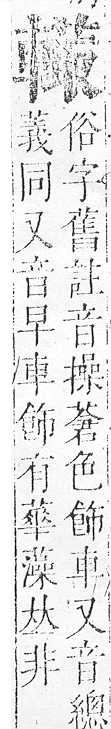 俗字舊註音操蒼色飾車又音總
義同又音早車飾有華藻𠀤非